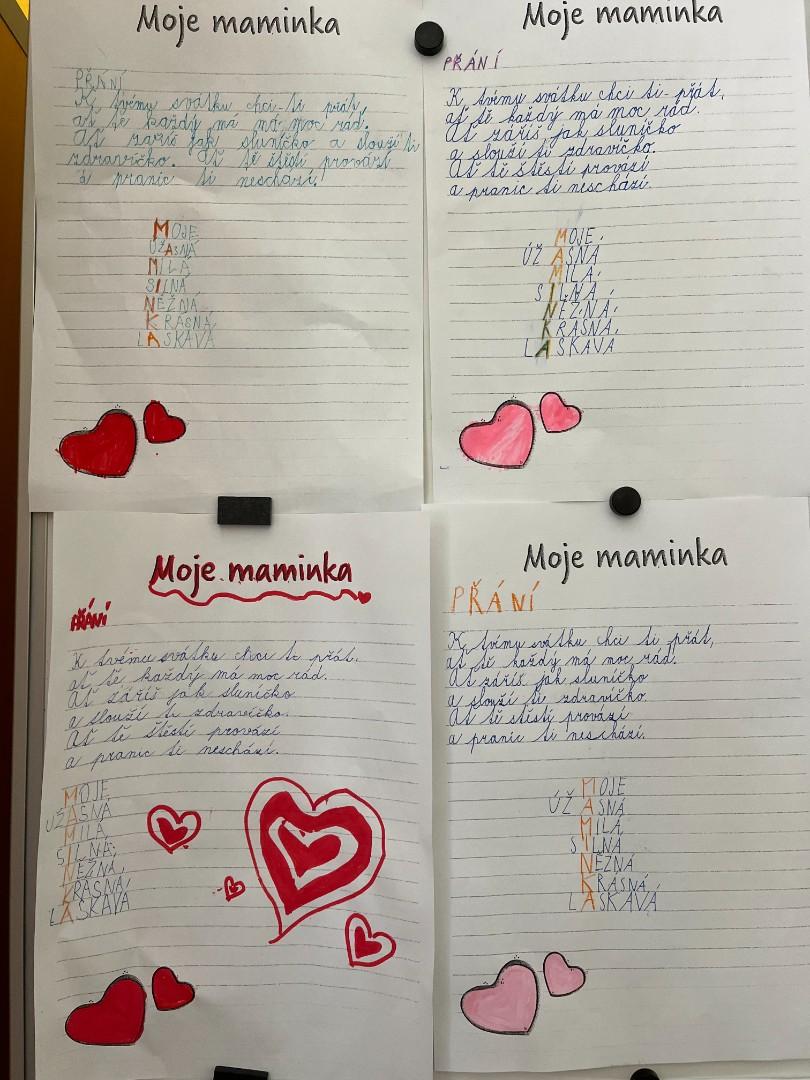 Moje maminka
PŘÁNÍ
K tvému svátku chci ti přát,
ať tě každý má má moc rád.
Ať záříš jak sluníčko a slouží ti
zdravíčko. Ať tě štěstí provází
a pranic ti neschází.
MOJE
ÚŽASNÁ
MILÁ
SILNÁ
NĚŽNÁ
KRÁSNÁ
LASKAVÁ
Moje maminka
PŘÁNÍ
K tvému svátku chci ti přát,
ať tě každý má moc rád.
Ať záříš jak sluníčko
a slouží ti zdravíčko.
Ať tě štěstí provází
a pranic ti neschází.
MOJE,
ÚŽASNÁ
MILÁ,
SILNÁ,
NĚŽNÁ,
KRÁSNÁ,
LASKAVÁ
Moje maminka
PŘÁNÍ
K tvému svátku chci ti přát,
ať tě každý má moc rád.
Ať záříš jak sluníčko
a slouží ti zdravíčko.
Ať tě štěstí provází
a pranic ti neschází.
MOJE
ÚŽASNÁ
MILÁ
SILNÁ,
NĚŽNÁ,
KRÁSNÁ,
LASKAVÁ
Moje maminka
PŘÁNÍ
K tvímu svátku chci ti přát,
ať tě každý má moc rád.
Ať záříš jak sluníčko
a slouží ti zdravíčko.
Ať tě štěstí provází
a pranic ti neschází.
MOJE
ÚŽASNÁ
MILÁ
SILNA
NĚŽNÁ
KRÁSNÁ
LASKAVÁ